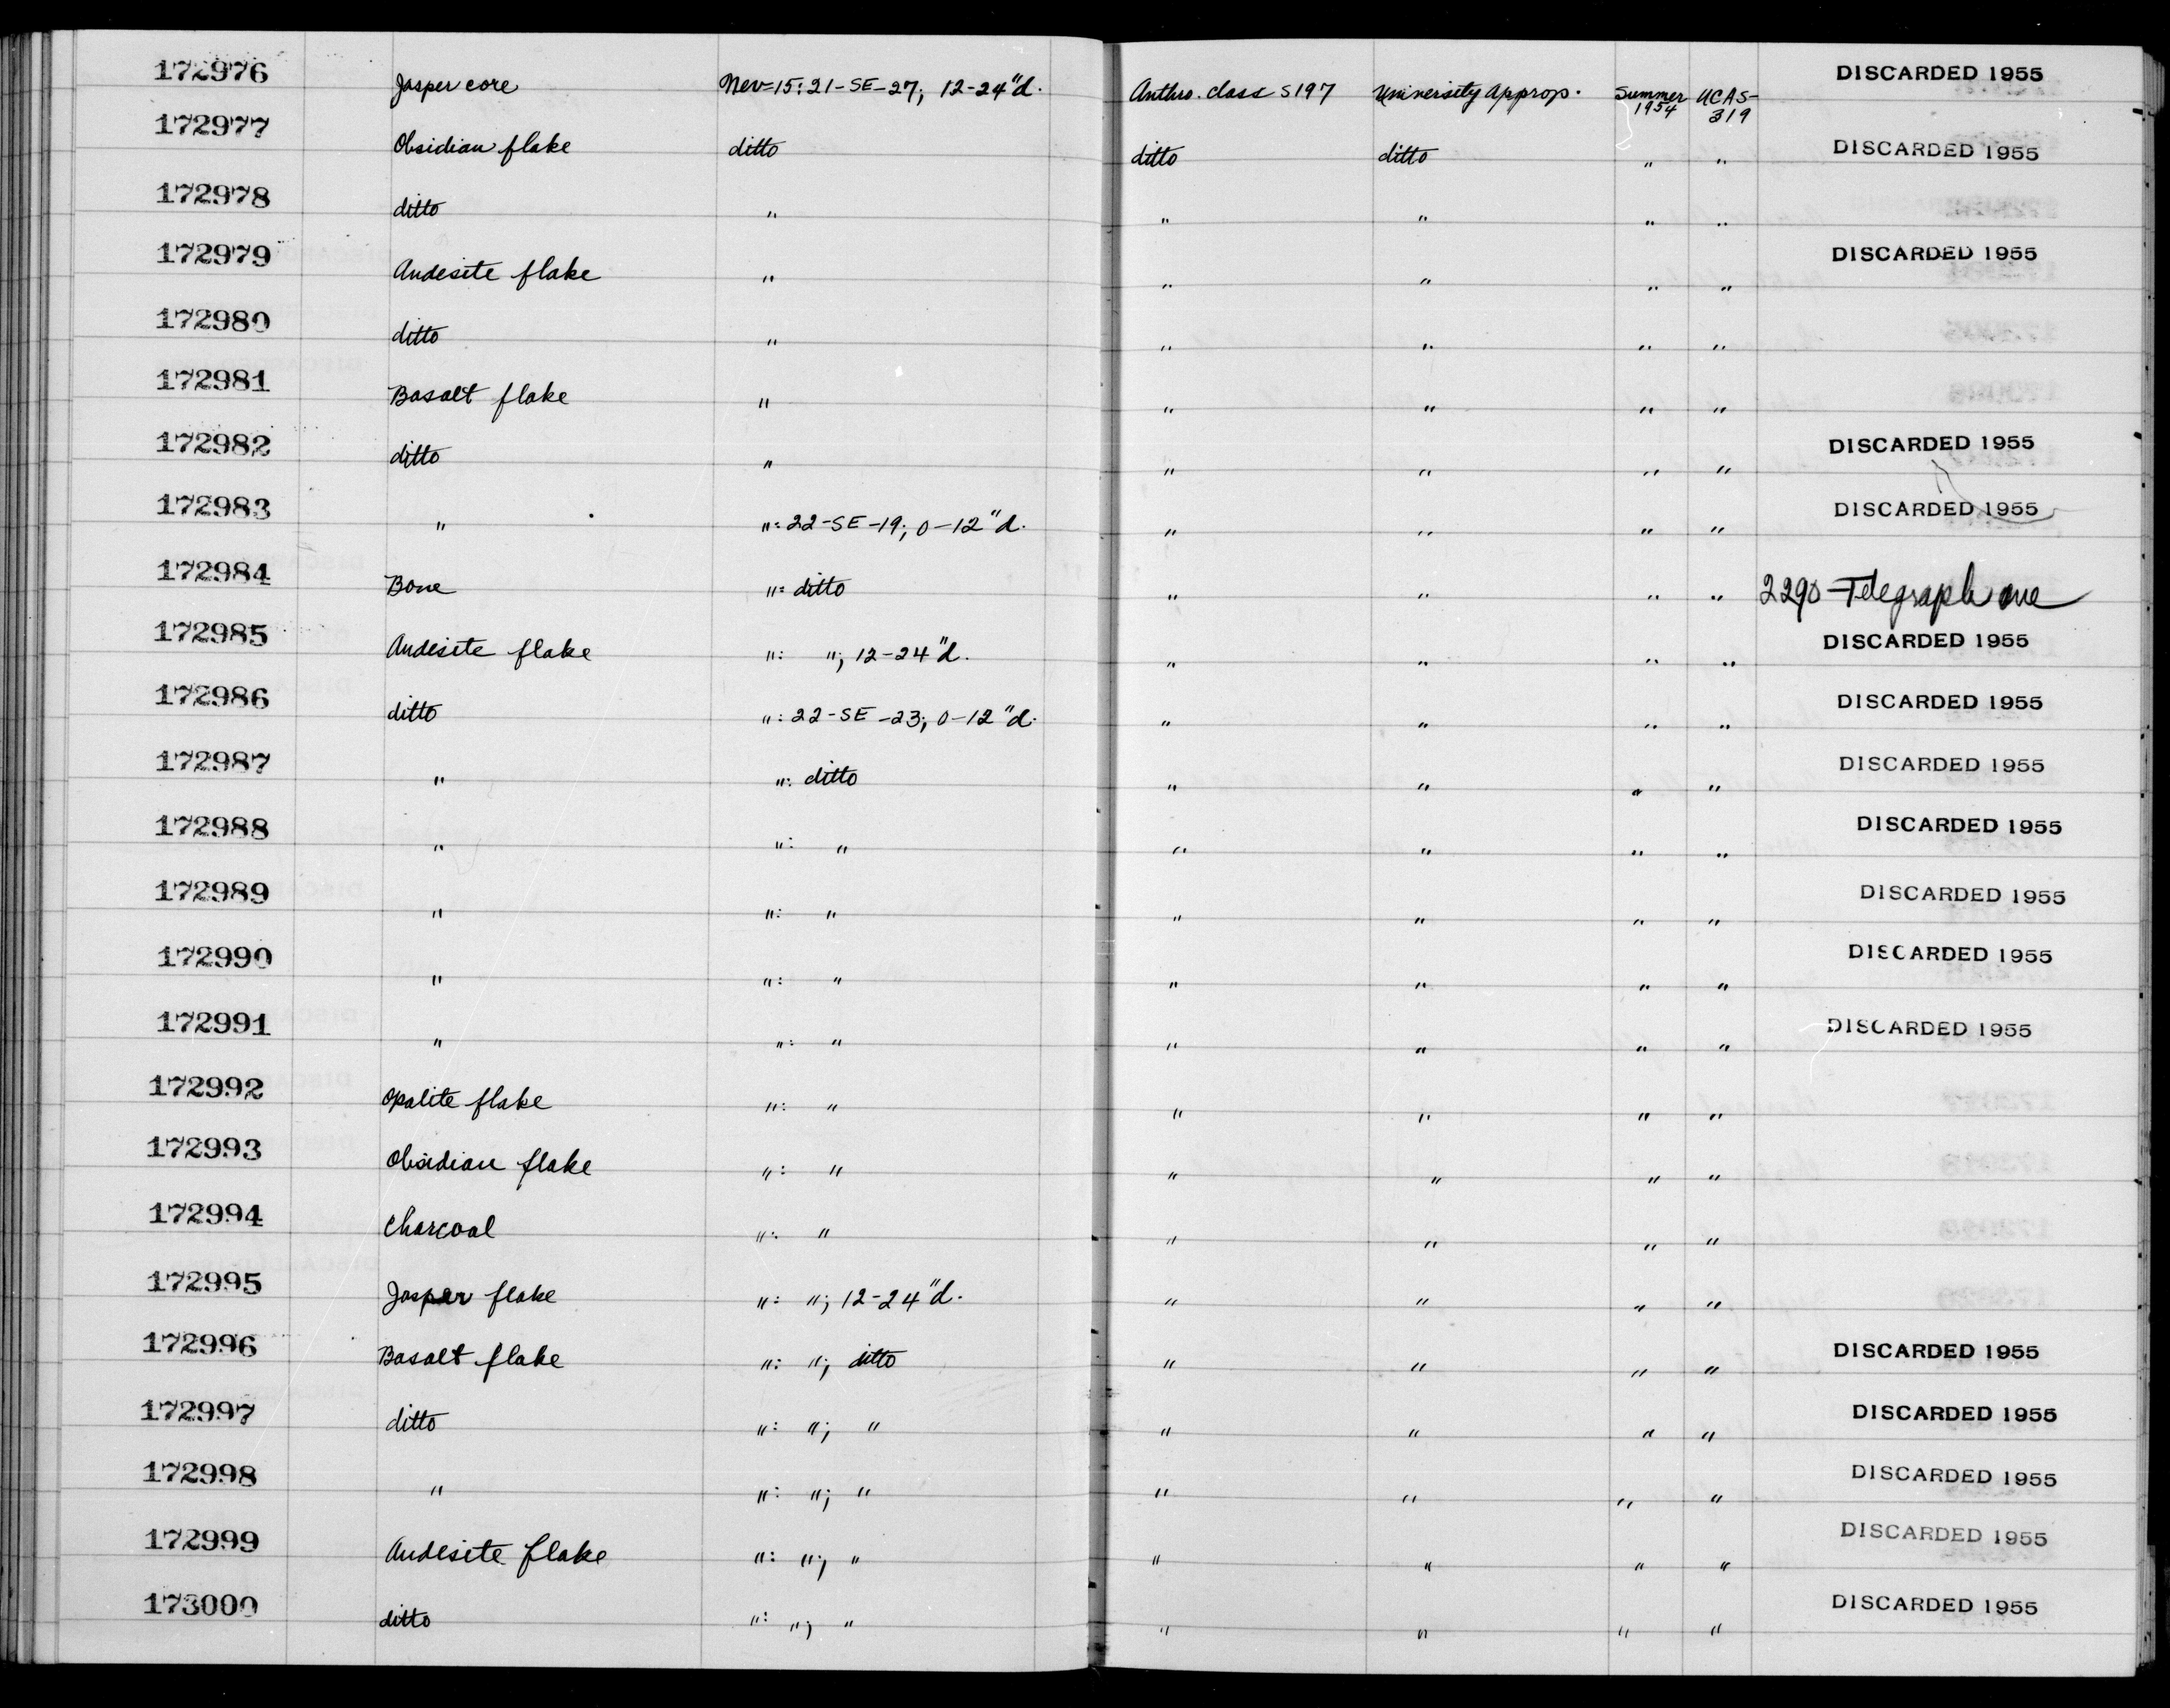 172976 Jasper core Nev-15: 21-SE-27; 12-24"d. Anthro. class S197 University Approp. Summer 1954 UCAS-319 DISCARDED 1955
172977 Obsidian flake ditto ditto ditto " " DISCARDED 1955
172978 ditto " " " " "
172979 Andesite flake " " " " " DISCARDED 1955
172980 ditto " " " " "
172981 Basalt flake " " " " "
172982 ditto " " " " " DISCARDED 1955
172983 " ": 22-SE-19; 0-12"d. " " " " DISCARDED 1955
172984 Bone ": ditto " " " " 2290 Telegraph ave
172985 Andesite flake ": "; 12-24"d. " " " " DISCARDED 1955
172986 ditto ": 22-SE-23; 0-12"d. " " " " DISCARDED 1955
172987 " ": ditto " " " " DISCARDED 1955
172988 " ": " " " " " DISCARDED 1955
172989 " ": " " " " " DISCARDED 1955
172990 " ": " " " " " DISCARDED 1955
172991 " ": " " " " " DISCARDED 1955
172992 Opalite flake ": " " " " "
172993 Obsidian flake ": " " " " "
172994 Charcoal ": " " " " "
172995 Jasper flake ": "; 12-24"d. " " " "
172996 Basalt flake ": "; ditto " " " " DISCARDED 1955
172997 ditto ": "; " " " " " DISCARDED 1955
172998 " ": "; " " " " " DISCARDED 1955
172999 Andesite flake ": "; " " " " " DISCARDED 1955
173000 ditto ": "; " " " " " DISCARDED 1955